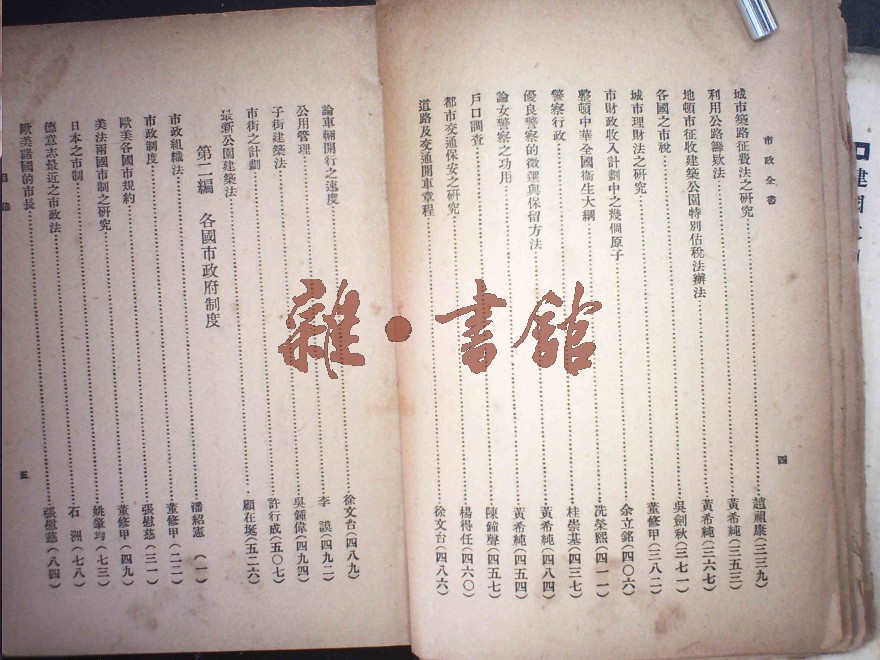 市政全書
四
城市築路征費法之研究……趙祖康(三三九)
利用公路籌欵法……黃希純(三五三)
地頓市征收建築公園特別估稅法辦法……黃希純(三六七)
各國之市稅……吳劍秋(三七一)
城市理財法之研究……董修甲(三八二)
市財政收入計劃中之幾個原子……余立銘(四〇六)
整頓中華全國衛生大綱……冼榮熙(四一一)
警察行政……桂崇基(四三七)
優良警察的徵選與保留方法……黃希純(四八四)
論女警察之功用……黃希純(四五四)
戶口調查……陳鐘聲(四五七)
都市交通保安之研究……楊得任(四六〇)
道路及交通開車章程……徐文台(四八六)
論車輛開行之速度……徐文台(四八九)
公用管理……李謨(四九二)
子街建築法……吳鍾偉(四九四)
市街之計劃……許行成(五〇七)
最新公園建築法……顧在埏(五二六)
第二編 各國市政府制度
市政組織法……潘紹憲(一)
市政制度……董修甲(二二)
歐美各國市規約……張慰慈(三一)
美法兩國市制之研究……董修甲(四九)
日本之市制……姚肇均(七三)
德意志最近之市政法……石洲(七八)
歐美諸國的市長……張慰慈(八四)
五
雜·書館